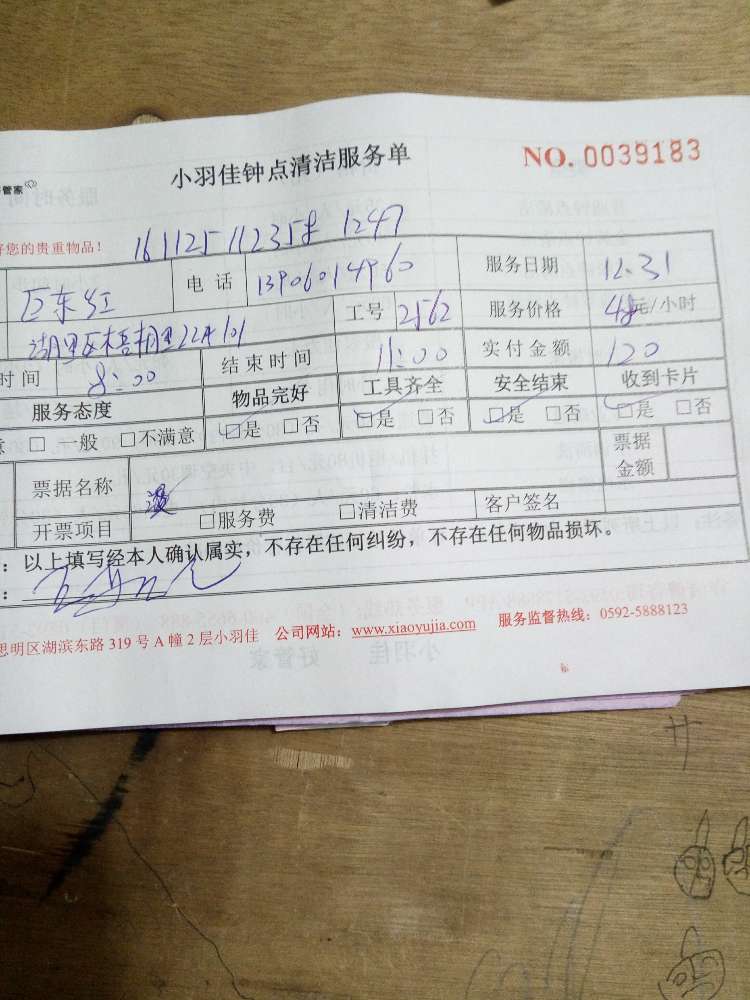 管家
小羽佳钟点清洁服务单
NO. 0039183
好您的贵重物品！
电话 13906014960 服务日期 12.31
工号 2562 服务价格 48元/小时
时间 8:00 结束时间 11:00 实付金额 120
服务态度 物品完好 工具齐全 安全结束 收到卡片
意 □ 一般 □不满意 □是 □否 □是 □否 □是 □否 □是 □否
票据名称 票据金额
开票项目 □服务费 □清洁费 客户签名
：以上填写经本人确认属实，不存在任何纠纷，不存在任何物品损坏。
：
思明区湖滨东路 319 号 A 幢 2 层小羽佳 公司网站：www.xiaoyujia.com 服务监督热线：0592-5888123